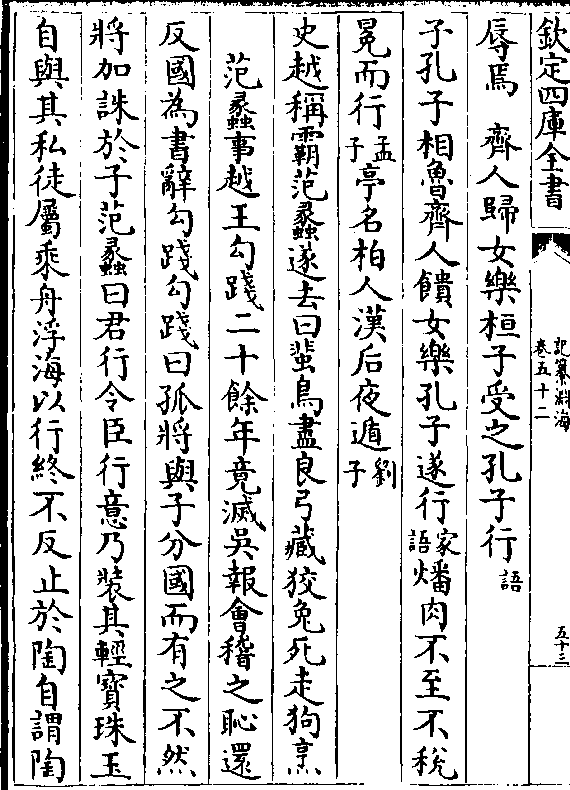 欽定四庫全書
記纂淵海
卷五十二
五十三
辱焉　齊人歸女樂桓子受之孔子行語
子孔子相魯齊人饋女樂孔子遂行家語燔肉不至不稅
冕而行孟子亭名柏人漢后夜遁劉子
史越稱霸范蠡遂去曰蜚鳥盡良弓藏狡兔死走狗烹
范蠡事越王勾踐二十餘年竟滅吳報會稽之恥還
反國為書辭勾踐勾踐曰孤將與子分國而有之不然
將加誅於子范蠡曰君行令臣行意乃裝其輕寶珠玉
自與其私徒屬乘舟浮海以行終不反止於陶自謂陶